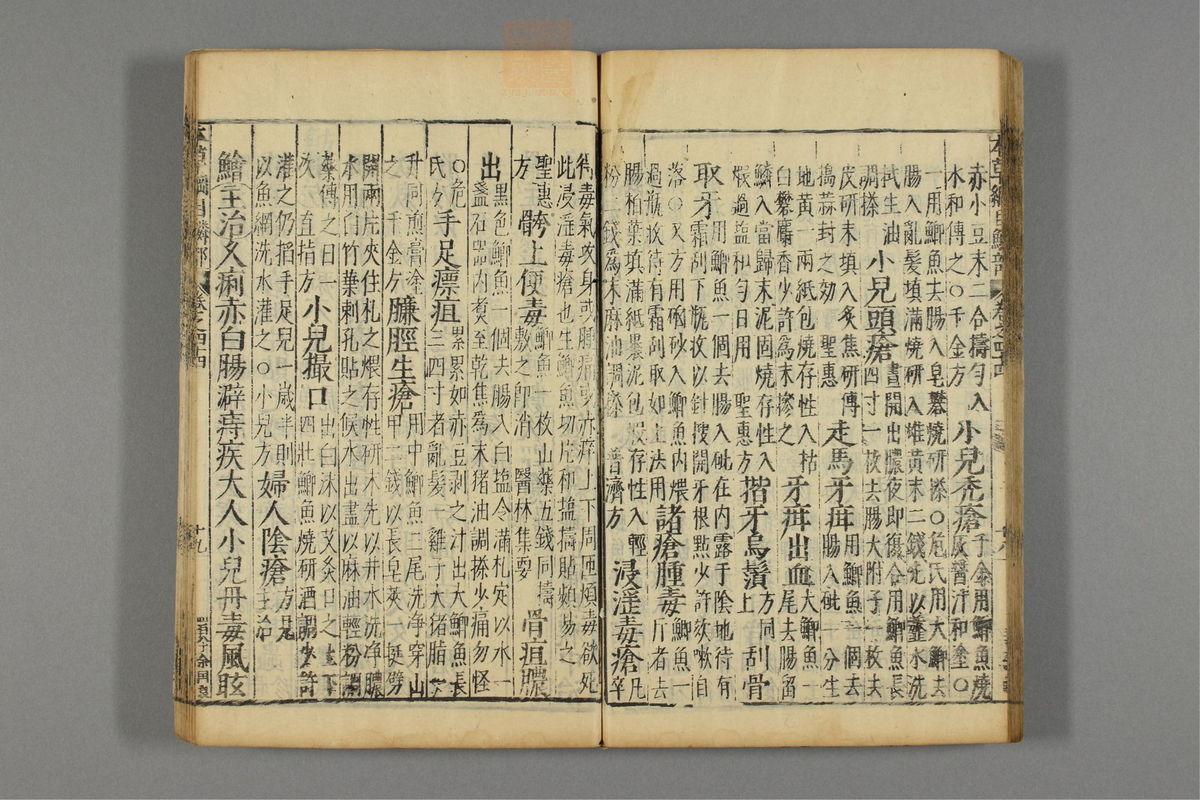 本草綱目鱗部
赤小豆末二合擣勻入
水和傅之○千金方
小兒禿瘡
千金用鯽魚燒
灰醬汁和塗○
一用鯽魚去腸入皂礬燒研搽○危氏用大鯽去
腸入亂髮填滿燒研入雄黃末二錢先以虀水洗
拭生油
調搽
小兒頭瘡
晝開出膿夜即復合用鯽魚長
四寸一枚去腸大附子一枚去
皮研末填入炙焦研傅
搗蒜封之効 聖惠
走馬牙疳
用鯽魚一個去
腸入砒一分生
地黃一兩紙包燒存性入枯
白礬麝香少許為末摻之
牙疳出血
大鯽魚一
尾去腸留
鱗入當歸末泥固燒存性入
煅過塩和勻日用 聖惠方
揩牙烏鬚
方同
上
刮骨
取牙
用鯽魚一個去腸入砒在內露于陰地待有
霜刮下瓶收以針搜開牙根點少許欬嗽自
落○又方用硇砂入鯽魚內煨
過瓶收待有霜刮取如上法用
諸瘡腫毒
鯽魚一
斤者去
腸柏葉填滿紙裹泥包煅存性入輕
粉二錢為末麻油調搽 普濟方
浸淫毒瘡
凡
卒
得毒氣攻身或腫痛或赤癢上下周匝煩毒欲死
此浸淫毒瘡也生鯽魚切片和塩擣貼頻易之
聖惠
方
胯上便毒
鯽魚一枚山藥五錢同擣
敷之即消 醫林集要
骨疽膿
出
黑色鯽魚一個去腸入白塩令滿札定以水一
盞石器內煮至乾焦為末猪油調搽少痛勿怪
○危
氏方
手足瘭疽
累累如赤豆剥之汁出大鯽魚長
三四寸者亂髮一雞子大猪脂一
升同煎膏塗
之 千金方
臁脛生瘡
用中鯽魚三尾洗淨穿山
甲二錢以長皂莢一挺劈
開兩片夾住札之煨存性研末先以井水洗淨膿
水用白竹葉刺孔貼之候水出盡以麻油輕粉調
藥傅之日一
次 直指方
小兒撮口
出白沫以艾灸口之上下
四壯鯽魚燒研酒調少許
灌之仍搯手足兒一歲半則
以魚網洗水灌之○小兒方
婦人陰瘡
方見
主治
鱠主治久痢赤白腸澼痔疾大人小兒丹毒風眩
本草綱目鱗部
十九